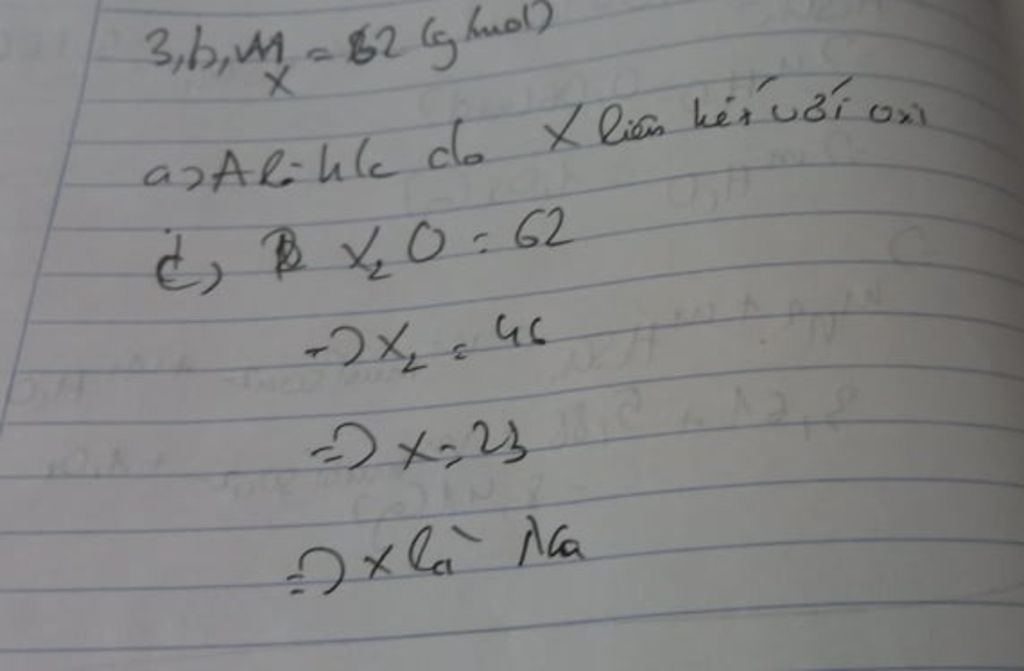 3, b, M X = 62 (g/mol)
a) A là h/c do X liên kết với oxi
c, X₂O = 62
=> X₂ = 46
=> X = 23
=> X là Na